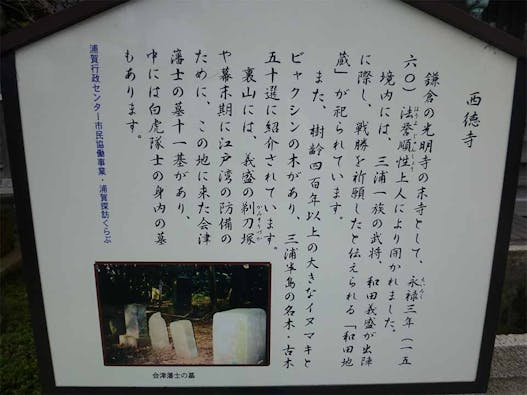 西徳寺
鎌倉の光明寺の末寺として、永禄三年(一五
六〇)法誉順性上人により開かれました。
境内には、三浦一族の武将、和田義盛が出陣
に際し、戦勝を祈願したと伝えられる「和田地
蔵」が祀られています。
また、樹齢四百年以上の大きなイヌマキと
ビャクシンの木があり、三浦半島の名木・古木
五十選に紹介されています。
裏山には、義盛の剃刀塚
や幕末期に江戸湾の防備の
ために、この地に来た会津
藩士の墓十一基があり、
中には白虎隊士の身内の墓
もあります。
浦賀行政センター市民協働事業・浦賀探訪くらぶ
会津藩士の墓